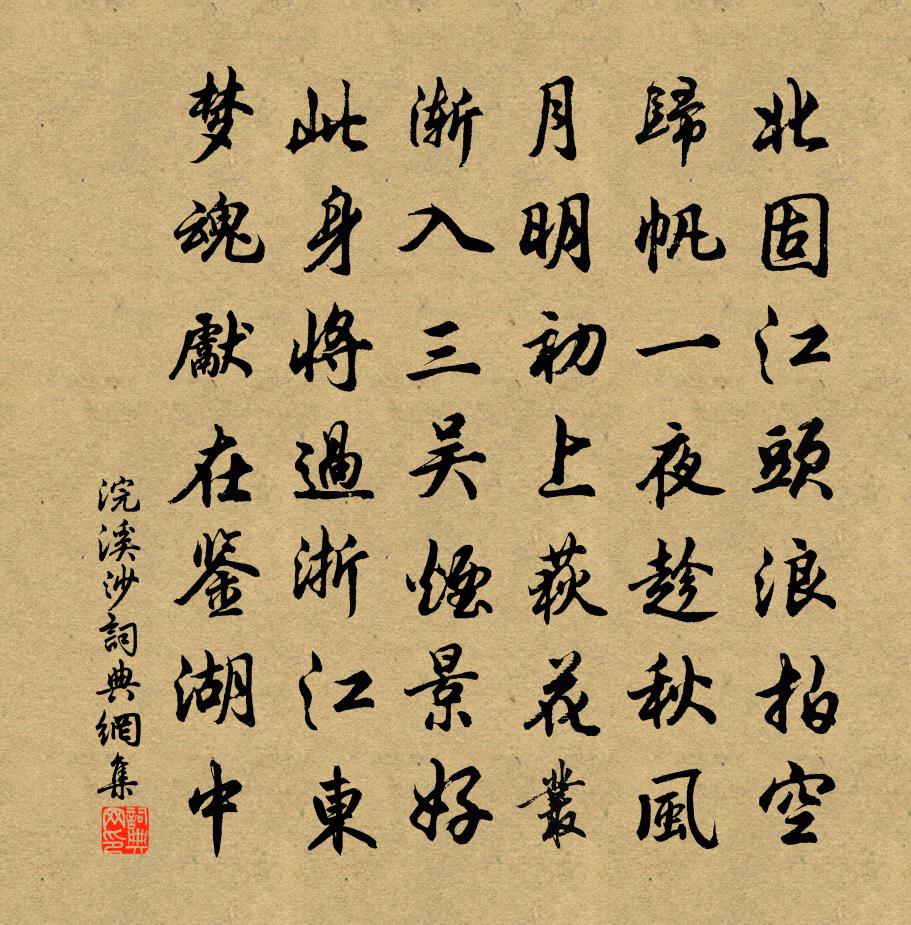 北固江頭浪拍空
歸帆一夜趁秋風
月明初上荻花叢
漸入三吴煙景好
此身將過浙江東
梦魂獻在鉴湖中
浣溪沙詞典網集
詞典网印